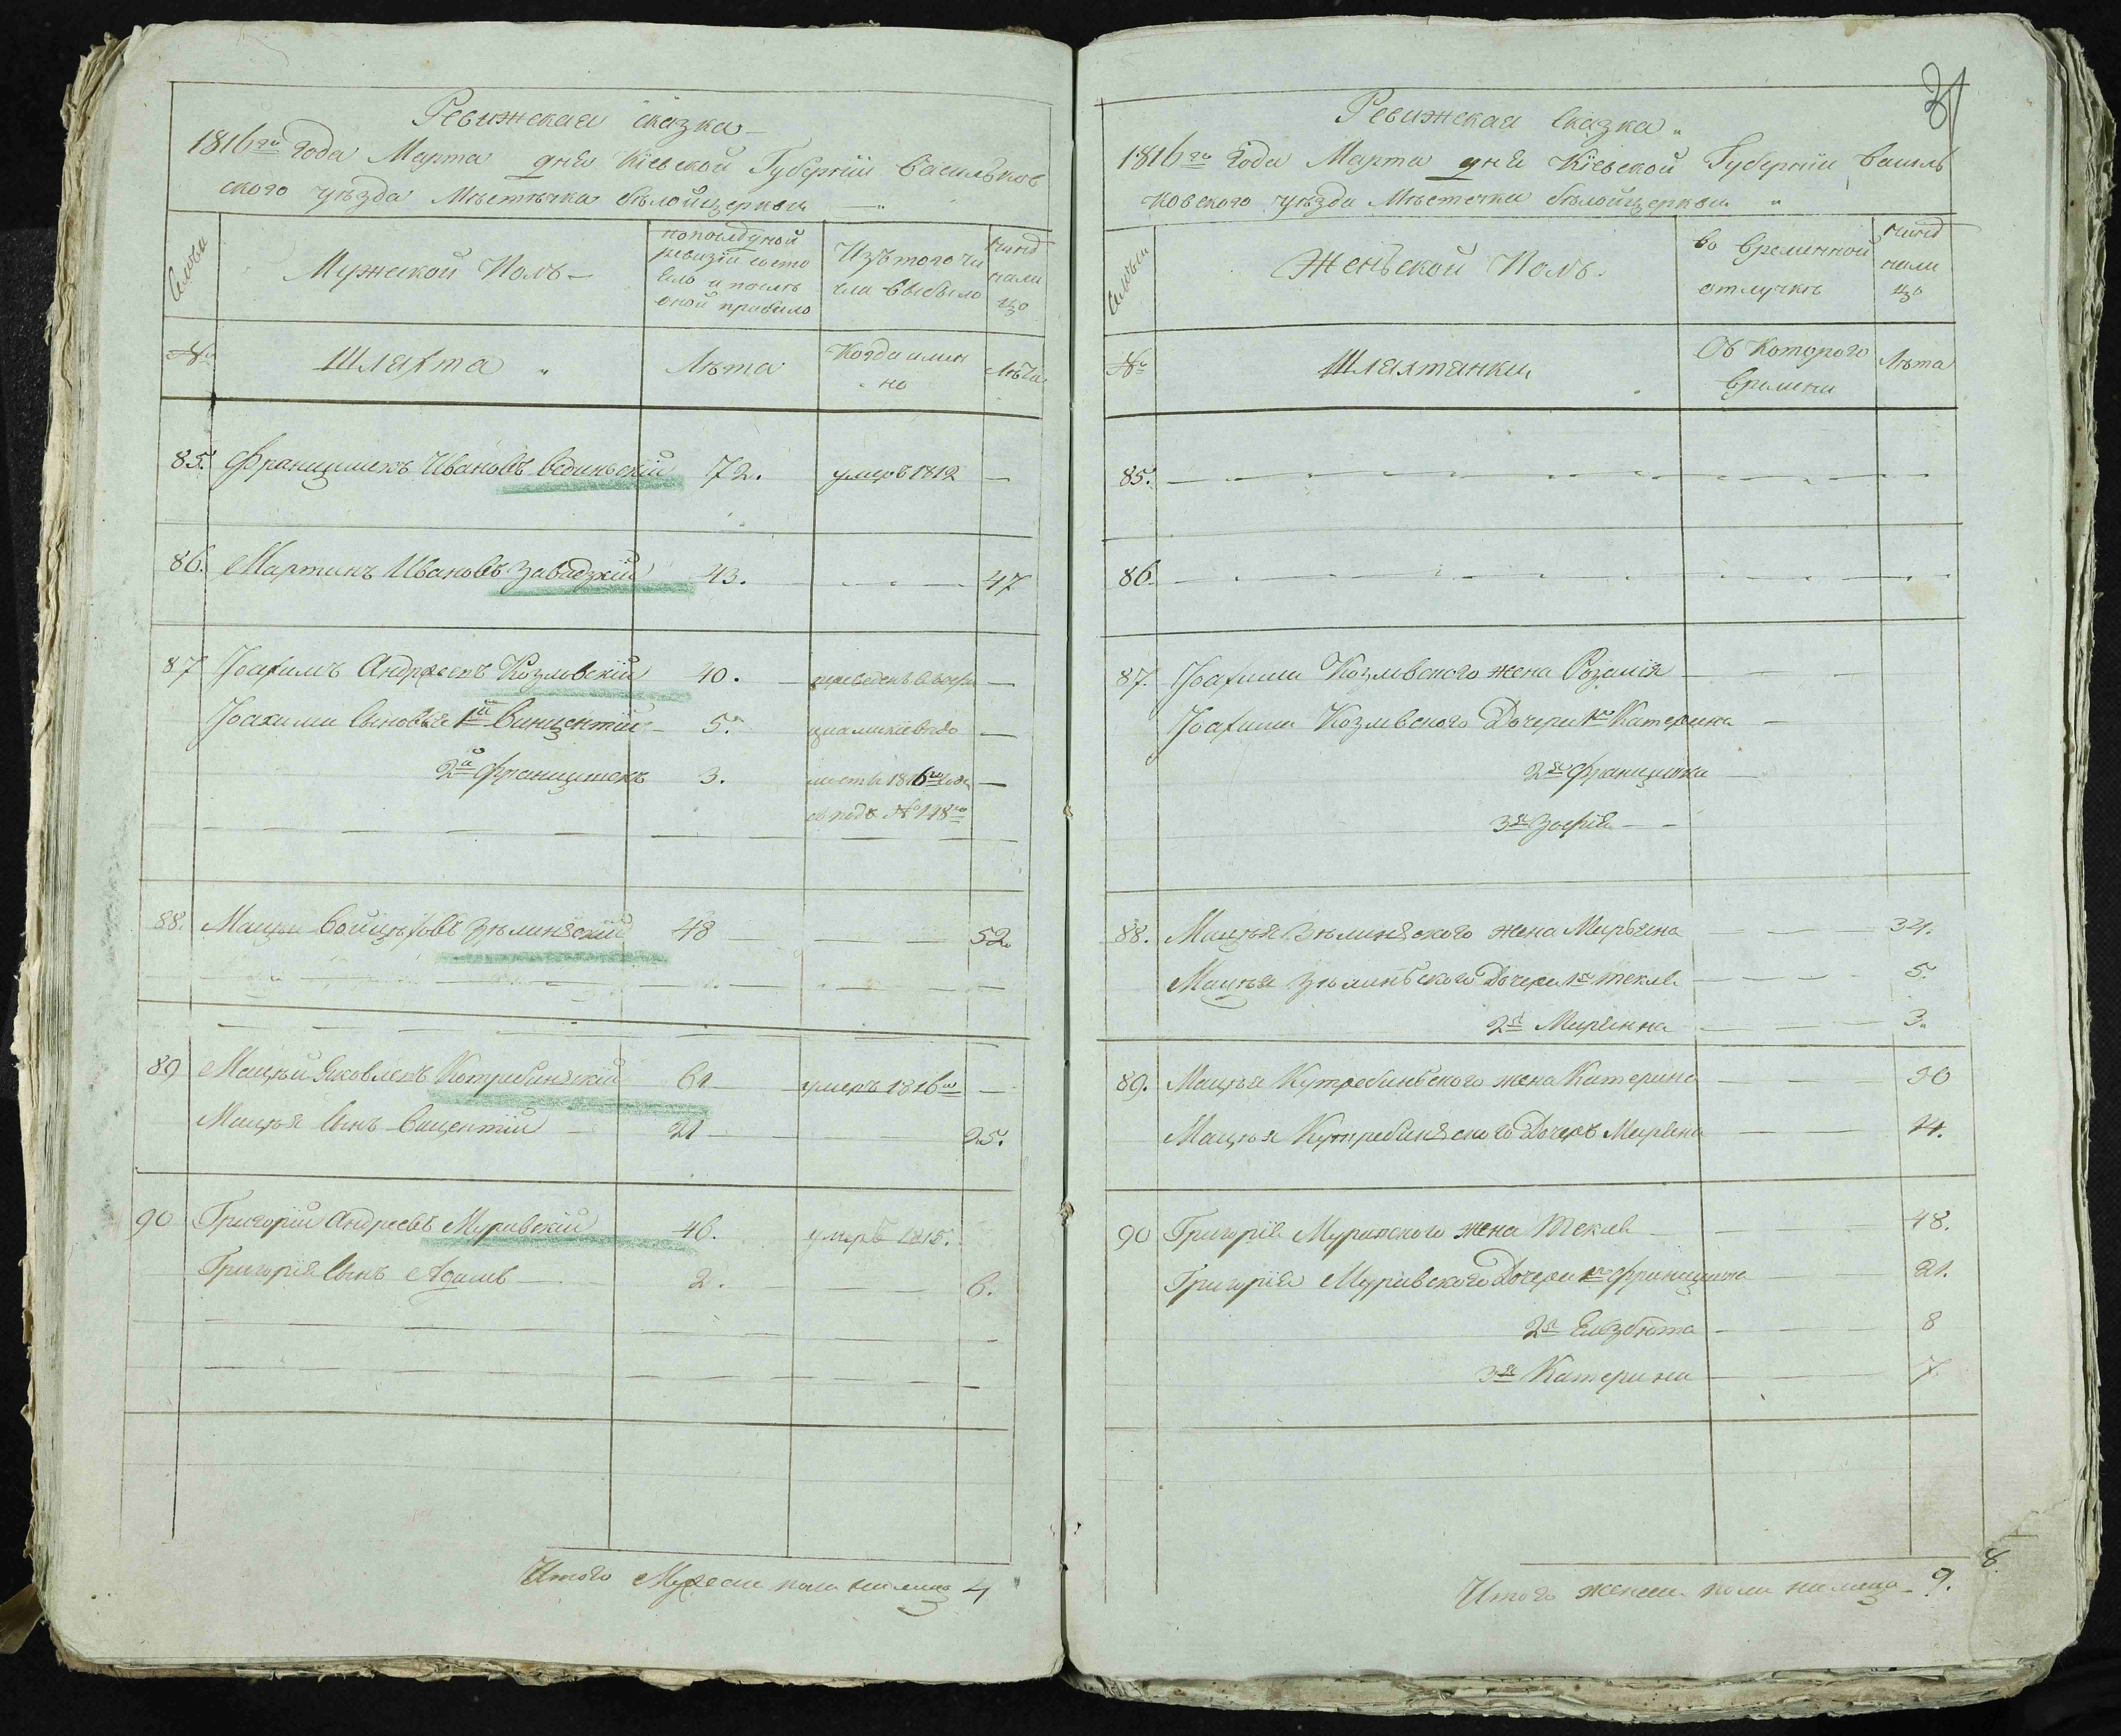 Ревижская сказка
1816го Года Марта дня Кіевской Губерніи Васильков
ского уѣзда Мѣстечка бѣлойцеркви
Семьи
Мужеской Полъ
попоследней
ревизіи состо
яло и послѣ
оной прибыло
Изъ того чи
сла выбыло
ныне
нали
цо
№
Шляхта
Лѣта
Когда имен
но
Лѣта
85. Францишекъ Ивановъ 72. умеръ 1812 —
86. Мартинъ Ивановъ Завадзкій 43. 47
87 Іоахимъ Андреевъ Козловскій 40. переведенъ —
Іоахима сыновья 1й Винцентій 5. —
2й Францишекъ 3. 1816го года —
№ 148
88. Мацей Войцеховъ Зѣлинскій 48 52.
89 Мацѣй Яковлевъ Котребинскій 61 умеръ 1816го —
Мацѣя сынъ Вицентій 21 25.
90 Григорій Андреевъ Муравскій 46. умеръ 1815.
Григорія сынъ Адамъ 2. 6.
Итого Мужеска пола налицо 4
3
31
Ревижская Сказка
1816го Года Марта дня Кіевской Губерніи Василь
ковского уѣзда Мѣстечка бѣлойцеркви
Семьи
Женской Полъ.
во Временной
отлучкѣ
ныне
нали
цо
№
Шляхтянки
Съ Которого
Времени
Лѣта
85.
86
87. Іоахима Козловского жена Розалія
Іоахима Козловского Дочери 1я Катерина
2я Францишка
3я Зофія
88. Мацѣя Зѣлинского жена Марьяна 34.
Мацѣя Зѣлинского Дочери 1я Текля 5.
2я Маріянна 3.
89. Мацѣя Кутребинского жена Катерина 50
Мацѣя Кутребинского Дочеръ Маріяна 14.
90 Григорія Муравского жена Текля 48.
Григорія Муравского Дочери 1я Францишка 21.
2я Елзбѣта 8
3я Катерина 7.
Итого женска пола налицо 9.
8